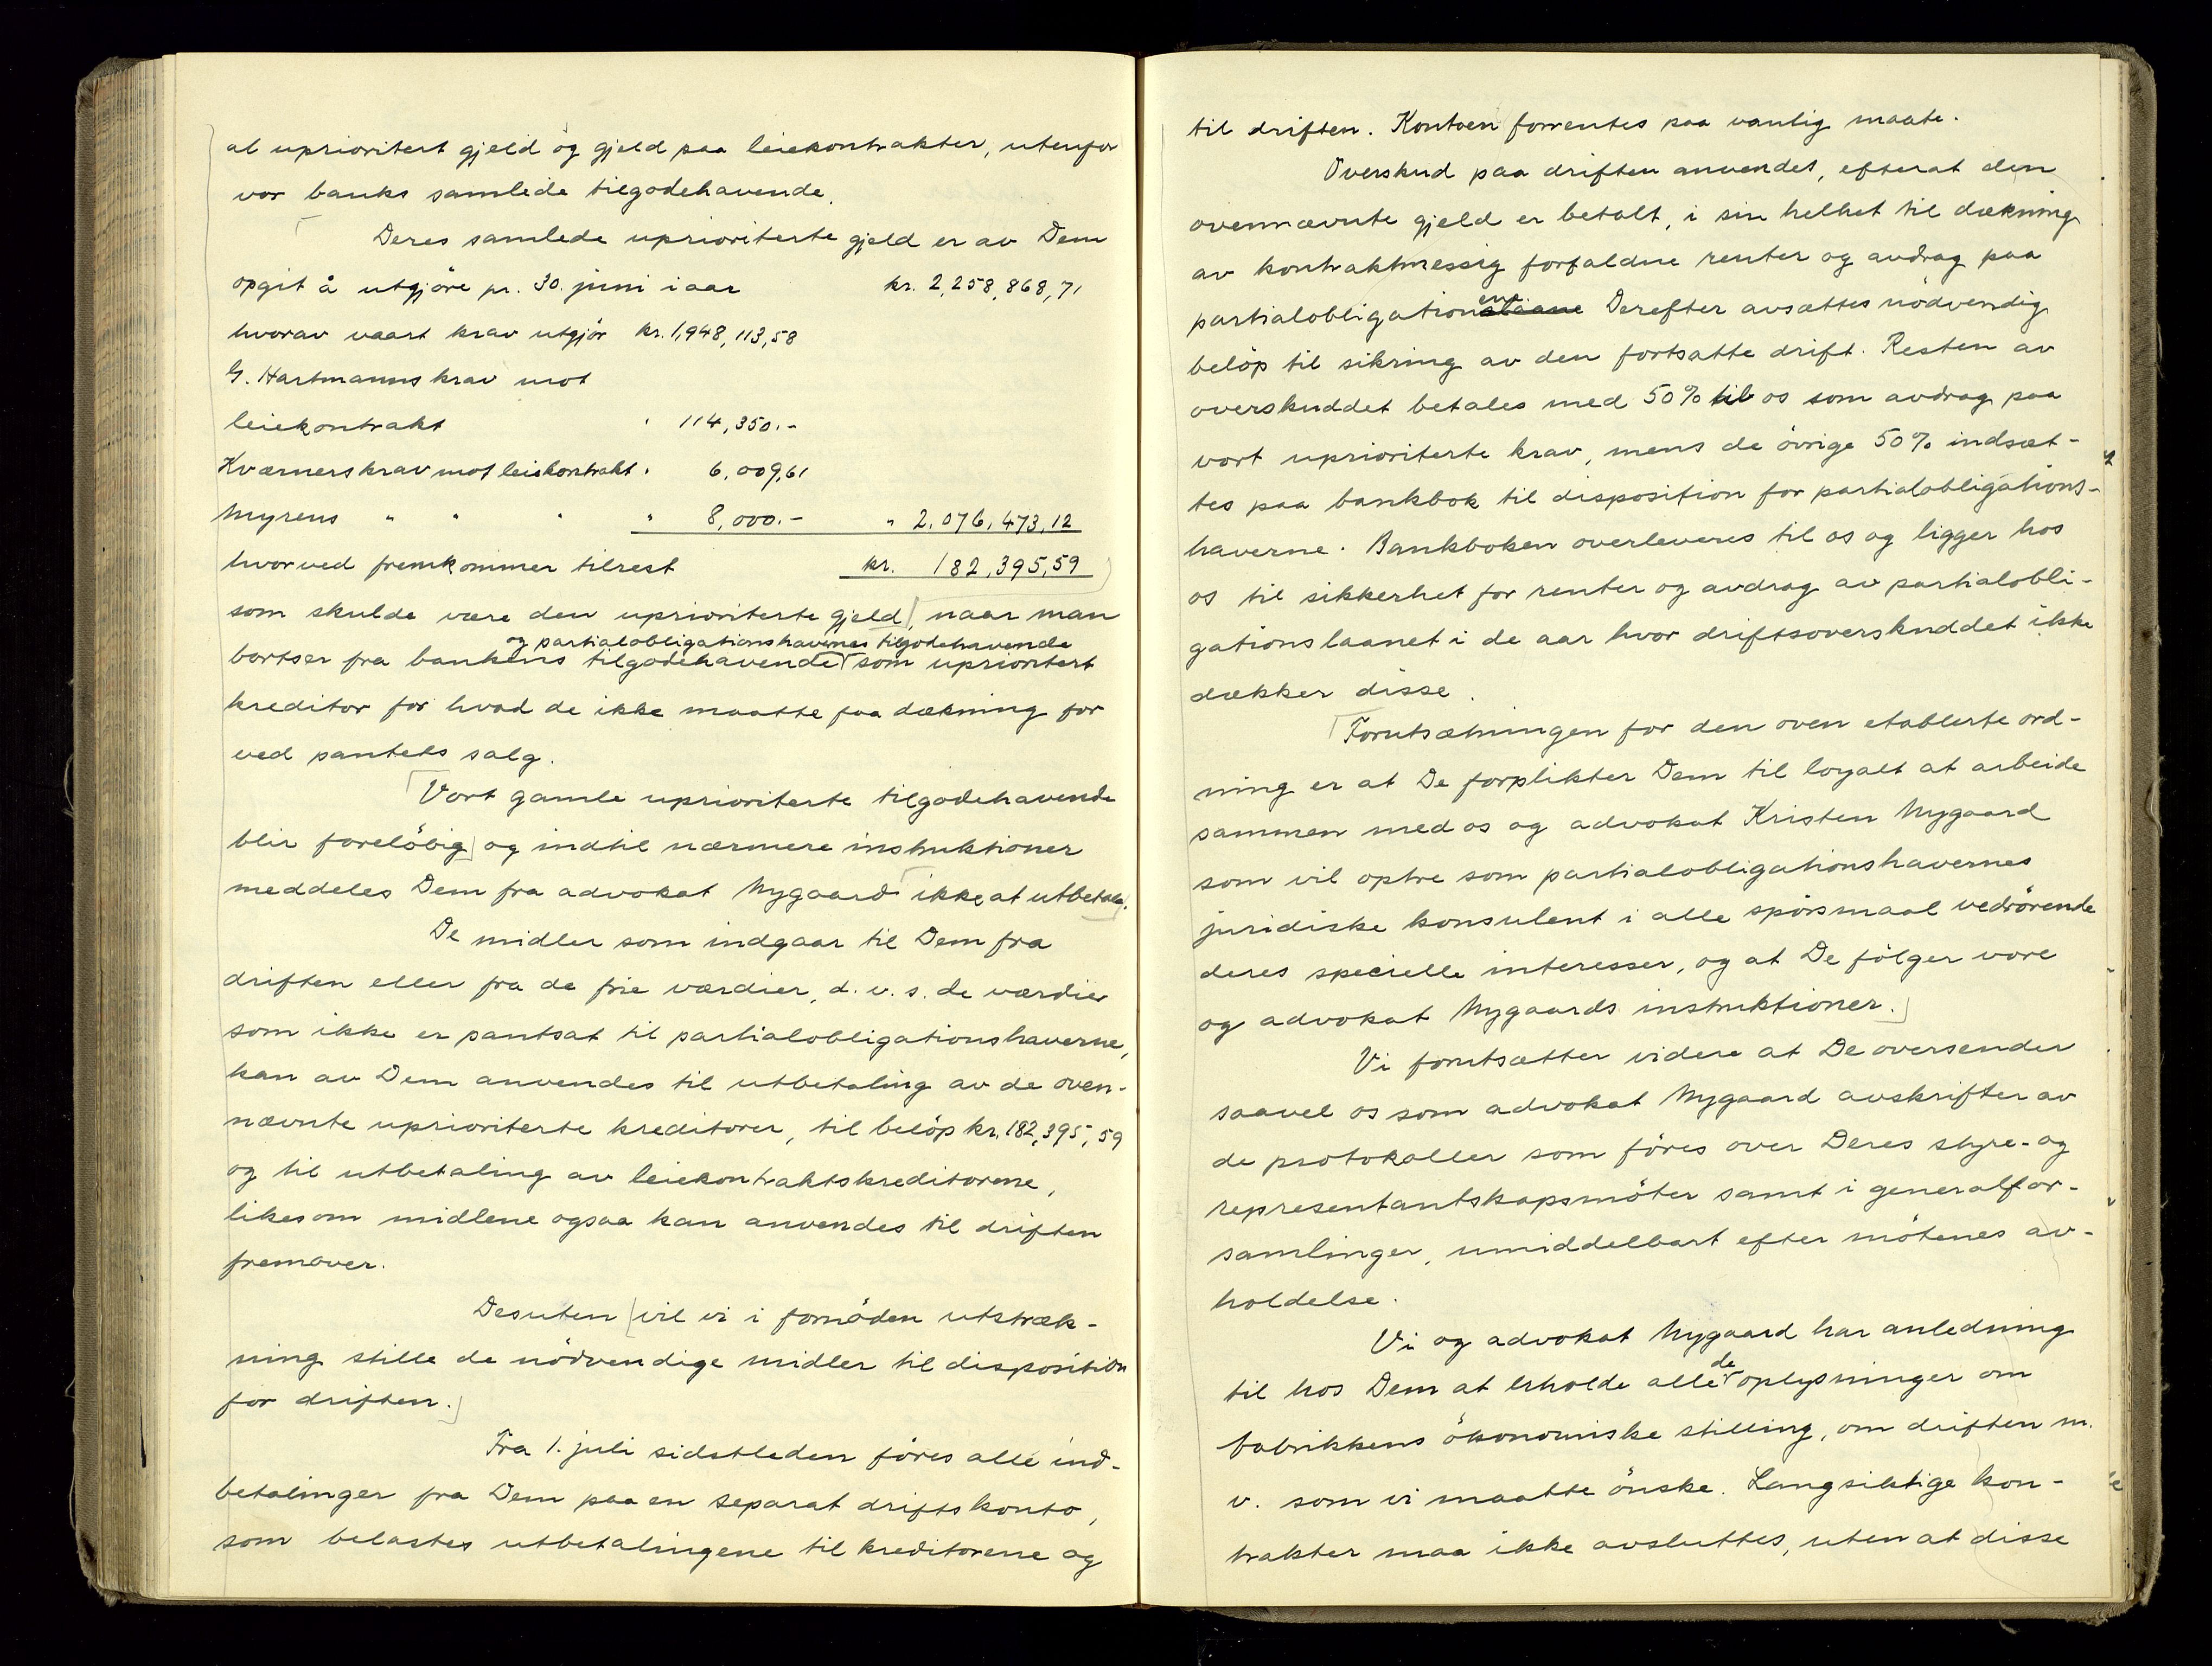 al uprioritert gjeld og gjeld paa leiekontrakter, utenfor
vor banks samlede tilgodehavende.
Deres samlede uprioriterte gjeld er av Dem
opgit å utgjöre pr. 30. juni i aar kr. 2,258,868,71
hvorav vaart krav utgjör kr. 1,948,113,58
G. Hartmanns krav mot
leiekontrakt " 114,350.-
Kværners krav mot leiekontrakt " 6,009,61
Myrens " " " " 8,000.- " 2.076,473,12
hvorved fremkommer tilrest kr. 182,395,59
som skulde være den uprioriterte gjeld, naar man
og partialobligationshavernes tilgodehavende
bortser fra bankens tilgodehavende som uprioritert
kreditor for hvad de ikke maatte faa dækning for
ved pantets salg.
Vort gamle uprioriterte tilgodehavende
blir foreløbig og indtil nærmere instruktioner
meddeles Dem fra advokat Nygaard ikke at utbetale.
De midler som indgaar til Dem fra
driften eller fra de frie værdier, d. v. s. de værdier
som ikke er pantsat til partialobligationshaverne,
kan av Dem anvendes til utbetaling av de oven-
nævnte uprioriterte kreditorer, til belöp kr. 182,395,59
og til utbetaling av leiekontraktskreditorene,
likesom midlene ogsaa kan anvendes til driften
fremover.
Desuten vil vi i fornöden utstræk-
ning stille de nödvendige midler til disposition
for driften.
Fra 1. juli sidstleden föres alle ind-
betalinger fra Dem paa en separat driftskonto,
som belastes utbetalingene til kreditorene og
til driften. Kontoen forrentes paa vanlig maate.
Overskud paa driften anvendes, efterat den
ovennævnte gjeld er betalt, i sin helhet til dækning
av kontraktmessig forfaldne renter og avdrag paa
ene
partialobligationslaane Derefter avsættes nödvendig
belöp til sikring av den fortsatte drift. Resten av
overskuddet betales med 50% til os som avdrag paa
vort uprioriterte krav, mens de övrige 50% indsæt-
tes paa bankbok til disposition for partialobligations-
haverne. Bankboken overleveres til os og ligger hos
os til sikkerhet for renter og avdrag av partialobli-
gationslaanet i de aar hvor driftsoverskuddet ikke
dækker disse.
Forutsætningen for den oven etablerte ord-
ning er at De forplikter Dem til loyalt at arbeide
sammen med os og advokat Kristen Nygaard
som vil optre som partialobligationshavernes
juridiske konsulent i alle spörsmaal vedrörende
deres specielle interesser, og at De fölger vore
og advokat Nygaards instruktioner.
Vi forutsætter videre at De oversender
saavel os som advokat Nygaard avskrifter av
de protokoller som föres over Deres styre- og
representantskapsmöter samt i generalfor-
samlinger, umiddelbart efter mötenes av-
holdelse.
Vi og advokat Nygaard har anledning
de
til hos Dem at erholde alle oplysninger om
fabrikkens ökonomiske stilling, om driften m.
v. som vi maatte önske. Langsiktige kon-
trakter maa ikke avsluttes, uten at disse